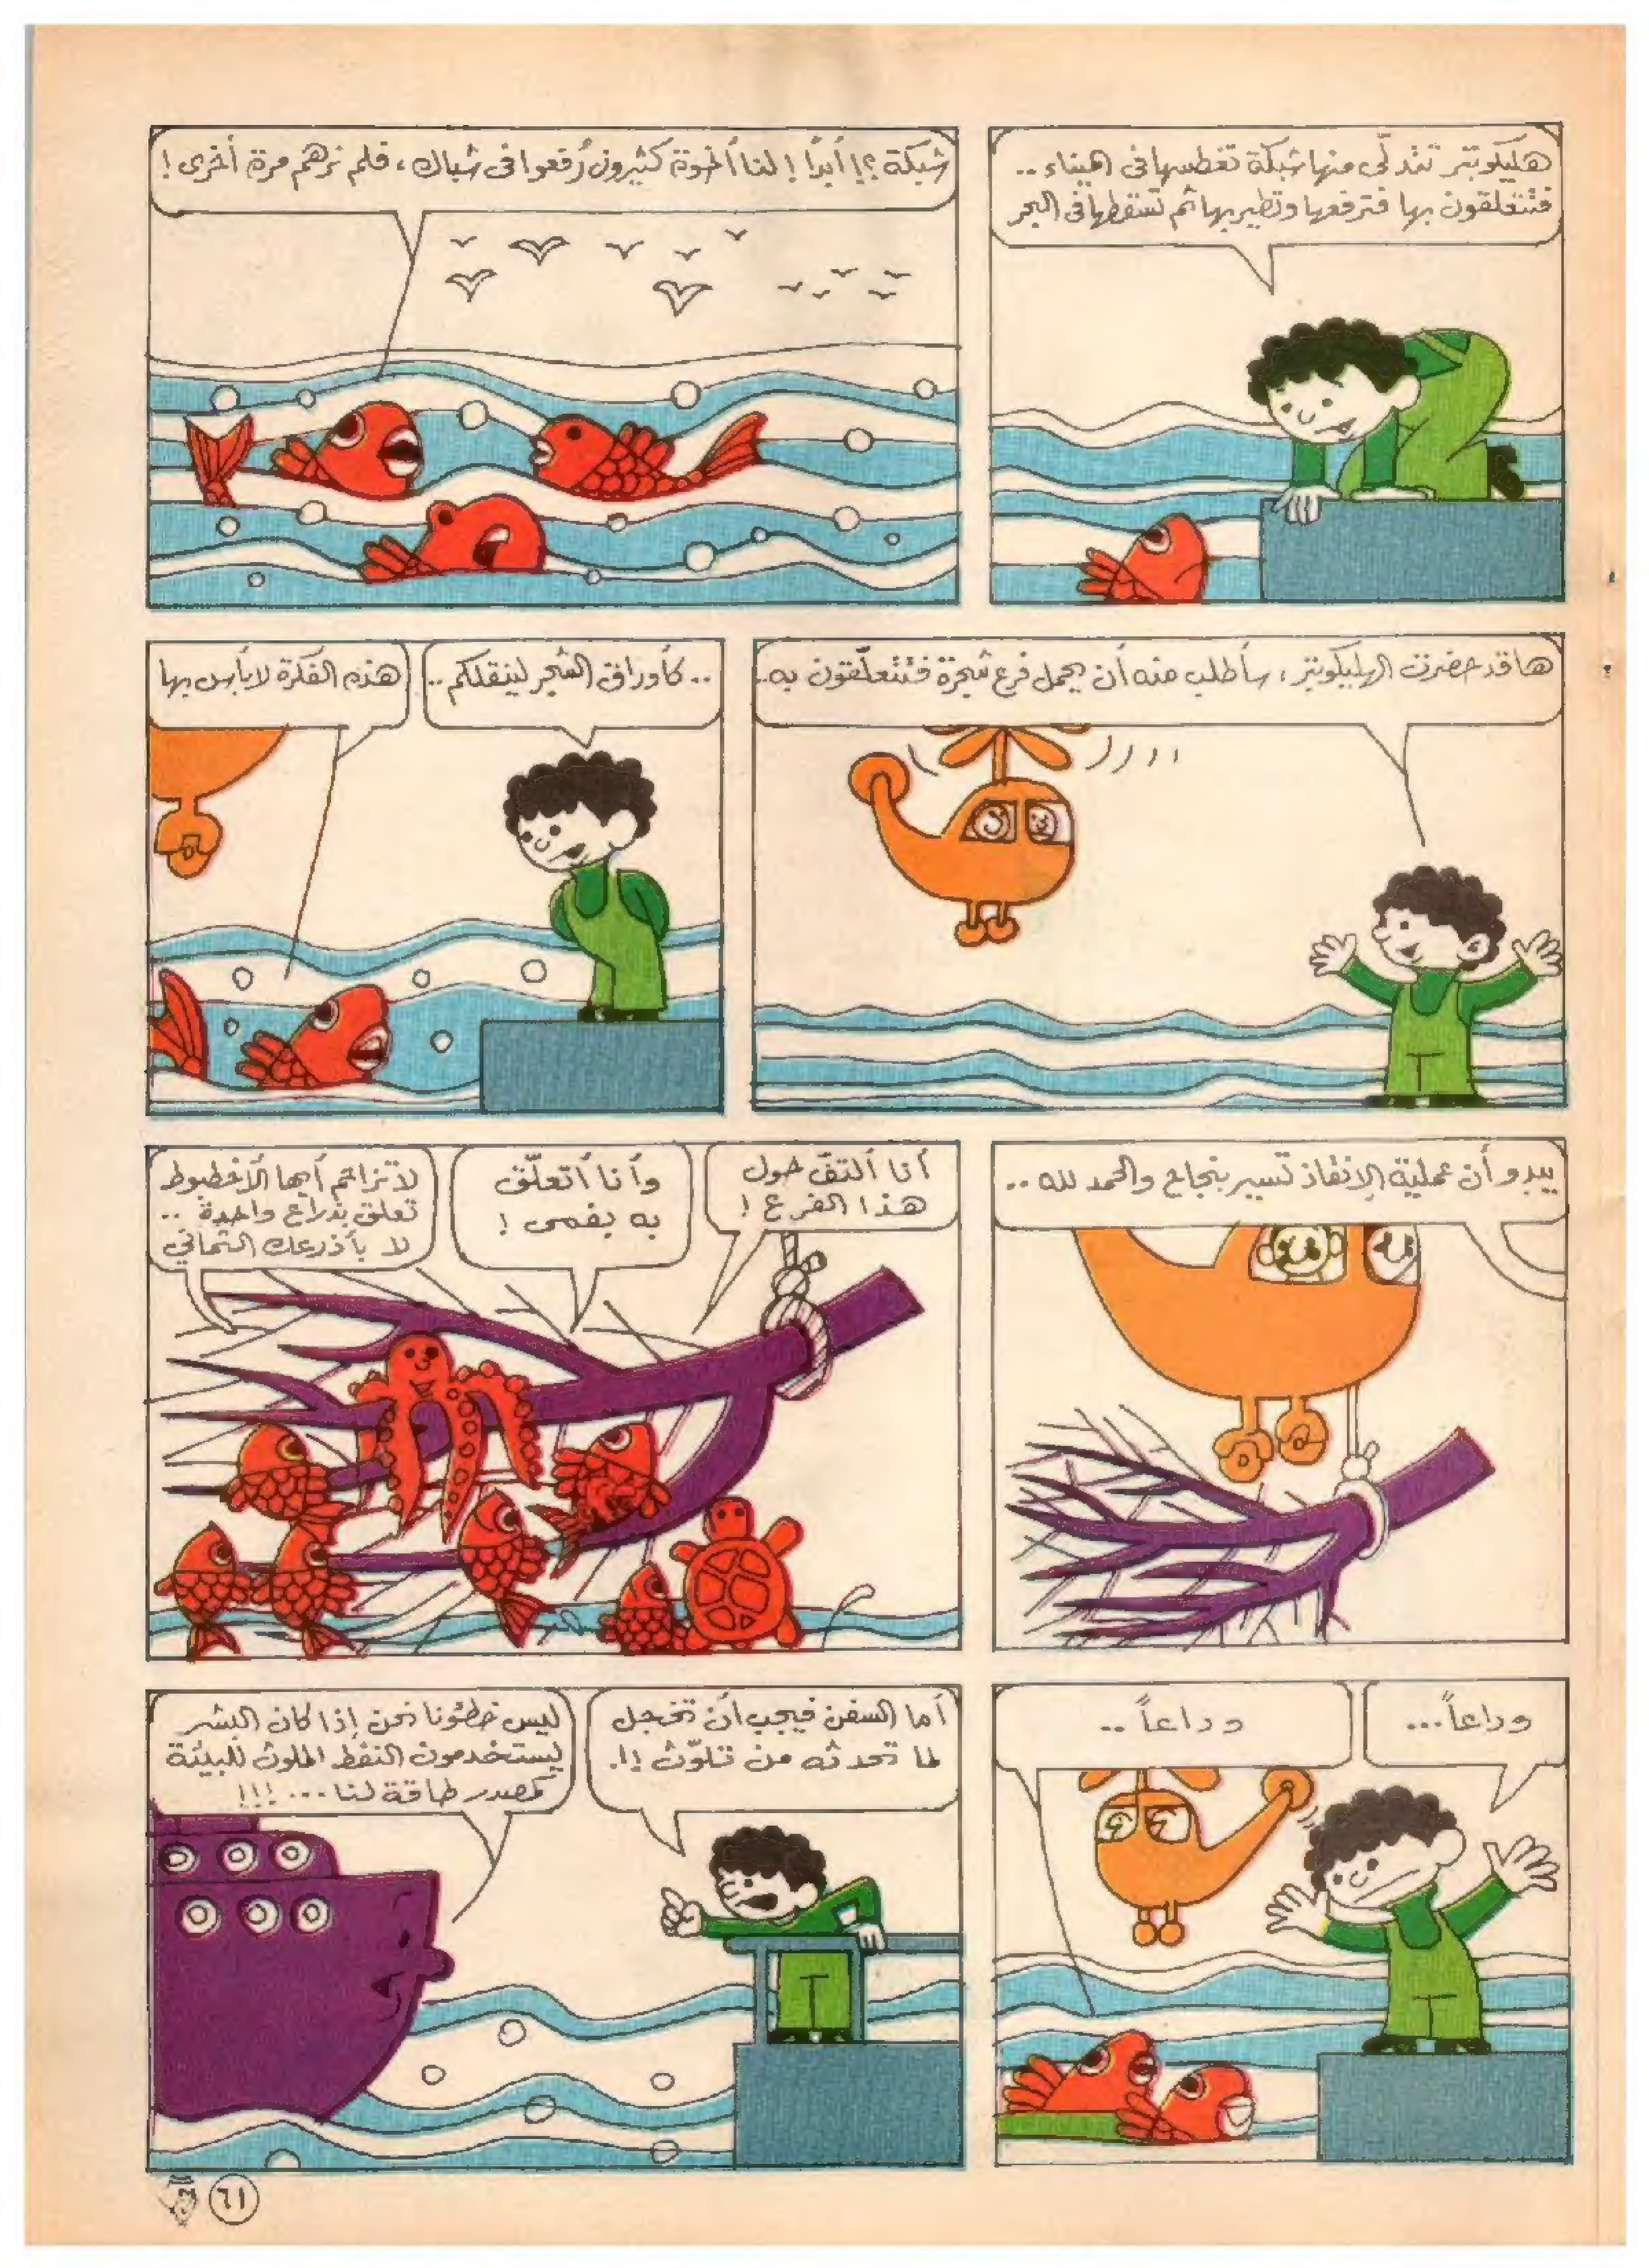 هليكوبتر تتدلّى منها شبكة تغطسها في الميناء ..
فتتعلقون بها فترفعها وتطير بها ثم تسقطها في البحر
شبكة ؟! أبدًا ! لنا أخوة كثيرون رُفعوا في شباك ، فلم نرهم مرة أخرى !
ها قد حضرت الهليكوبتر ، سأطلب منه أن يحمل فرع شجرة فتتعلّقون به ..
.. كأوراق الشجر لينقلكم ..
هذه الفكرة لا بأس بها
يبدو أن عملية الإنقاذ تسير بنجاح والحمد لله ..
أنا ألتفّ حول
هذا الفرع !
وأنا أتعلّق
به بفمى !
لا تزاحم أيها الأخطبوط
تعلق بذراع واحدة ..
لا بأذرعك الثماني
وداعاً ...
وداعاً ..
أما السفن فيجب أن تخجل
لما تحدثه من تلوّث !!.
ليس خطئونا نحن إذا كان البشر
يستخدمون النفط الملوث للبيئة
كمصدر طاقة لنا ... !!!
٦١